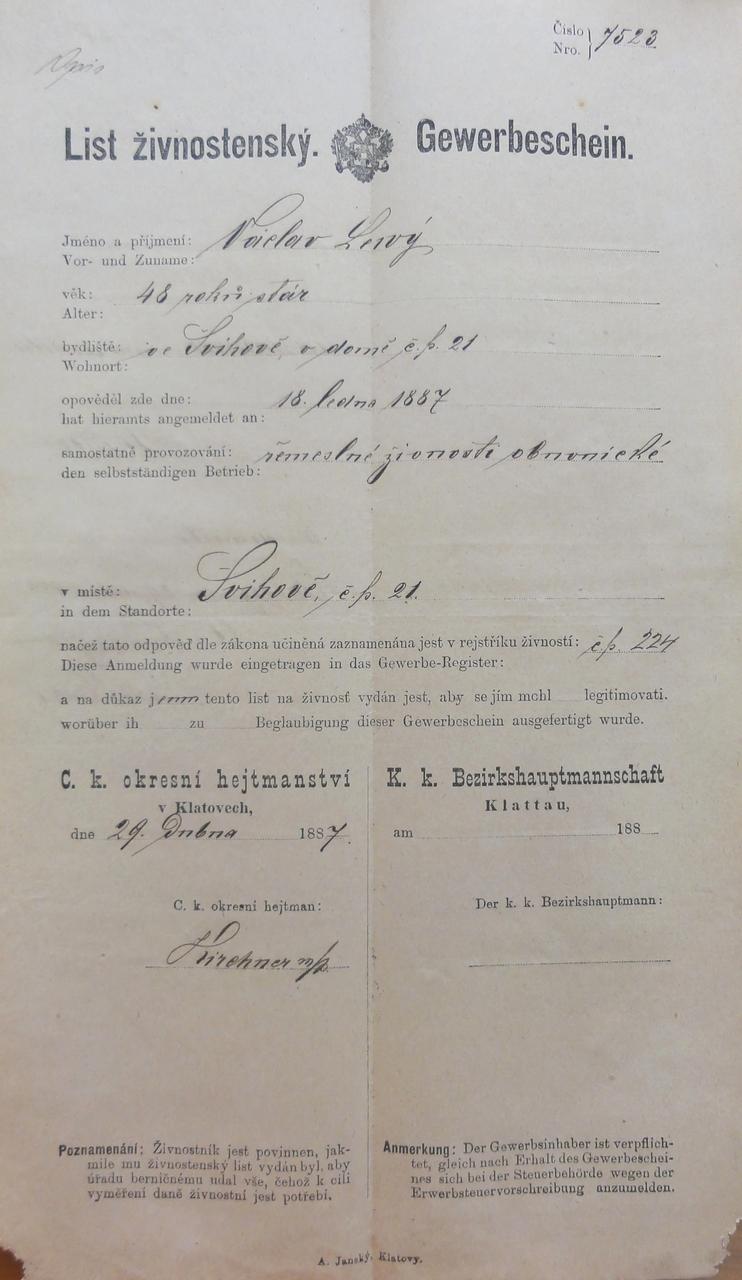 Číslo
Nro. } 7523
Opis
List živnostenský. Gewerbeschein.
Jméno a příjmení: Václav Levý
Vor- und Zuname:
věk: 48 roků stár
Alter:
bydliště: ve Švihově, v domě č. p. 21
Wohnort:
opověděl zde dne: 18. ledna 1887
hat hieramts angemeldet an:
samostatné provozování: řemeslné živnosti obuvnické
den selbstständigen Betrieb:
v místě: Švihově, č. p. 21.
in dem Standorte:
načež tato odpověď dle zákona učiněná zaznamenána jest v rejstříku živností: č. p. 224
Diese Anmeldung wurde eingetragen in das Gewerbe-Register:
a na důkaz j tento list na živnosť vydán jest, aby se jím mohl legitimovati.
worüber ih zu Beglaubigung dieser Gewerbeschein ausgefertigt wurde.
C. k. okresní hejtmanství
v Klatovech,
dne 29. Dubna 1887.
C. k. okresní hejtman:
Kirchner m/p.
K. k. Bezirkshauptmannschaft
Klattau,
am 188
Der k. k. Bezirkshauptmann:
Poznamenání: Živnostník jest povinnen, jak-
mile mu živnostenský list vydán byl, aby
úřadu berničnému udal vše, čehož k cíli
vyměření daně živnostní jest potřebí.
Anmerkung: Der Gewerbsinhaber ist verpflich-
tet, gleich nach Erhalt des Gewerbeschei-
nes sich bei der Steuerbehörde wegen der
Erwerbsteuervorschreibung anzumelden.
A. Janský, Klatovy.